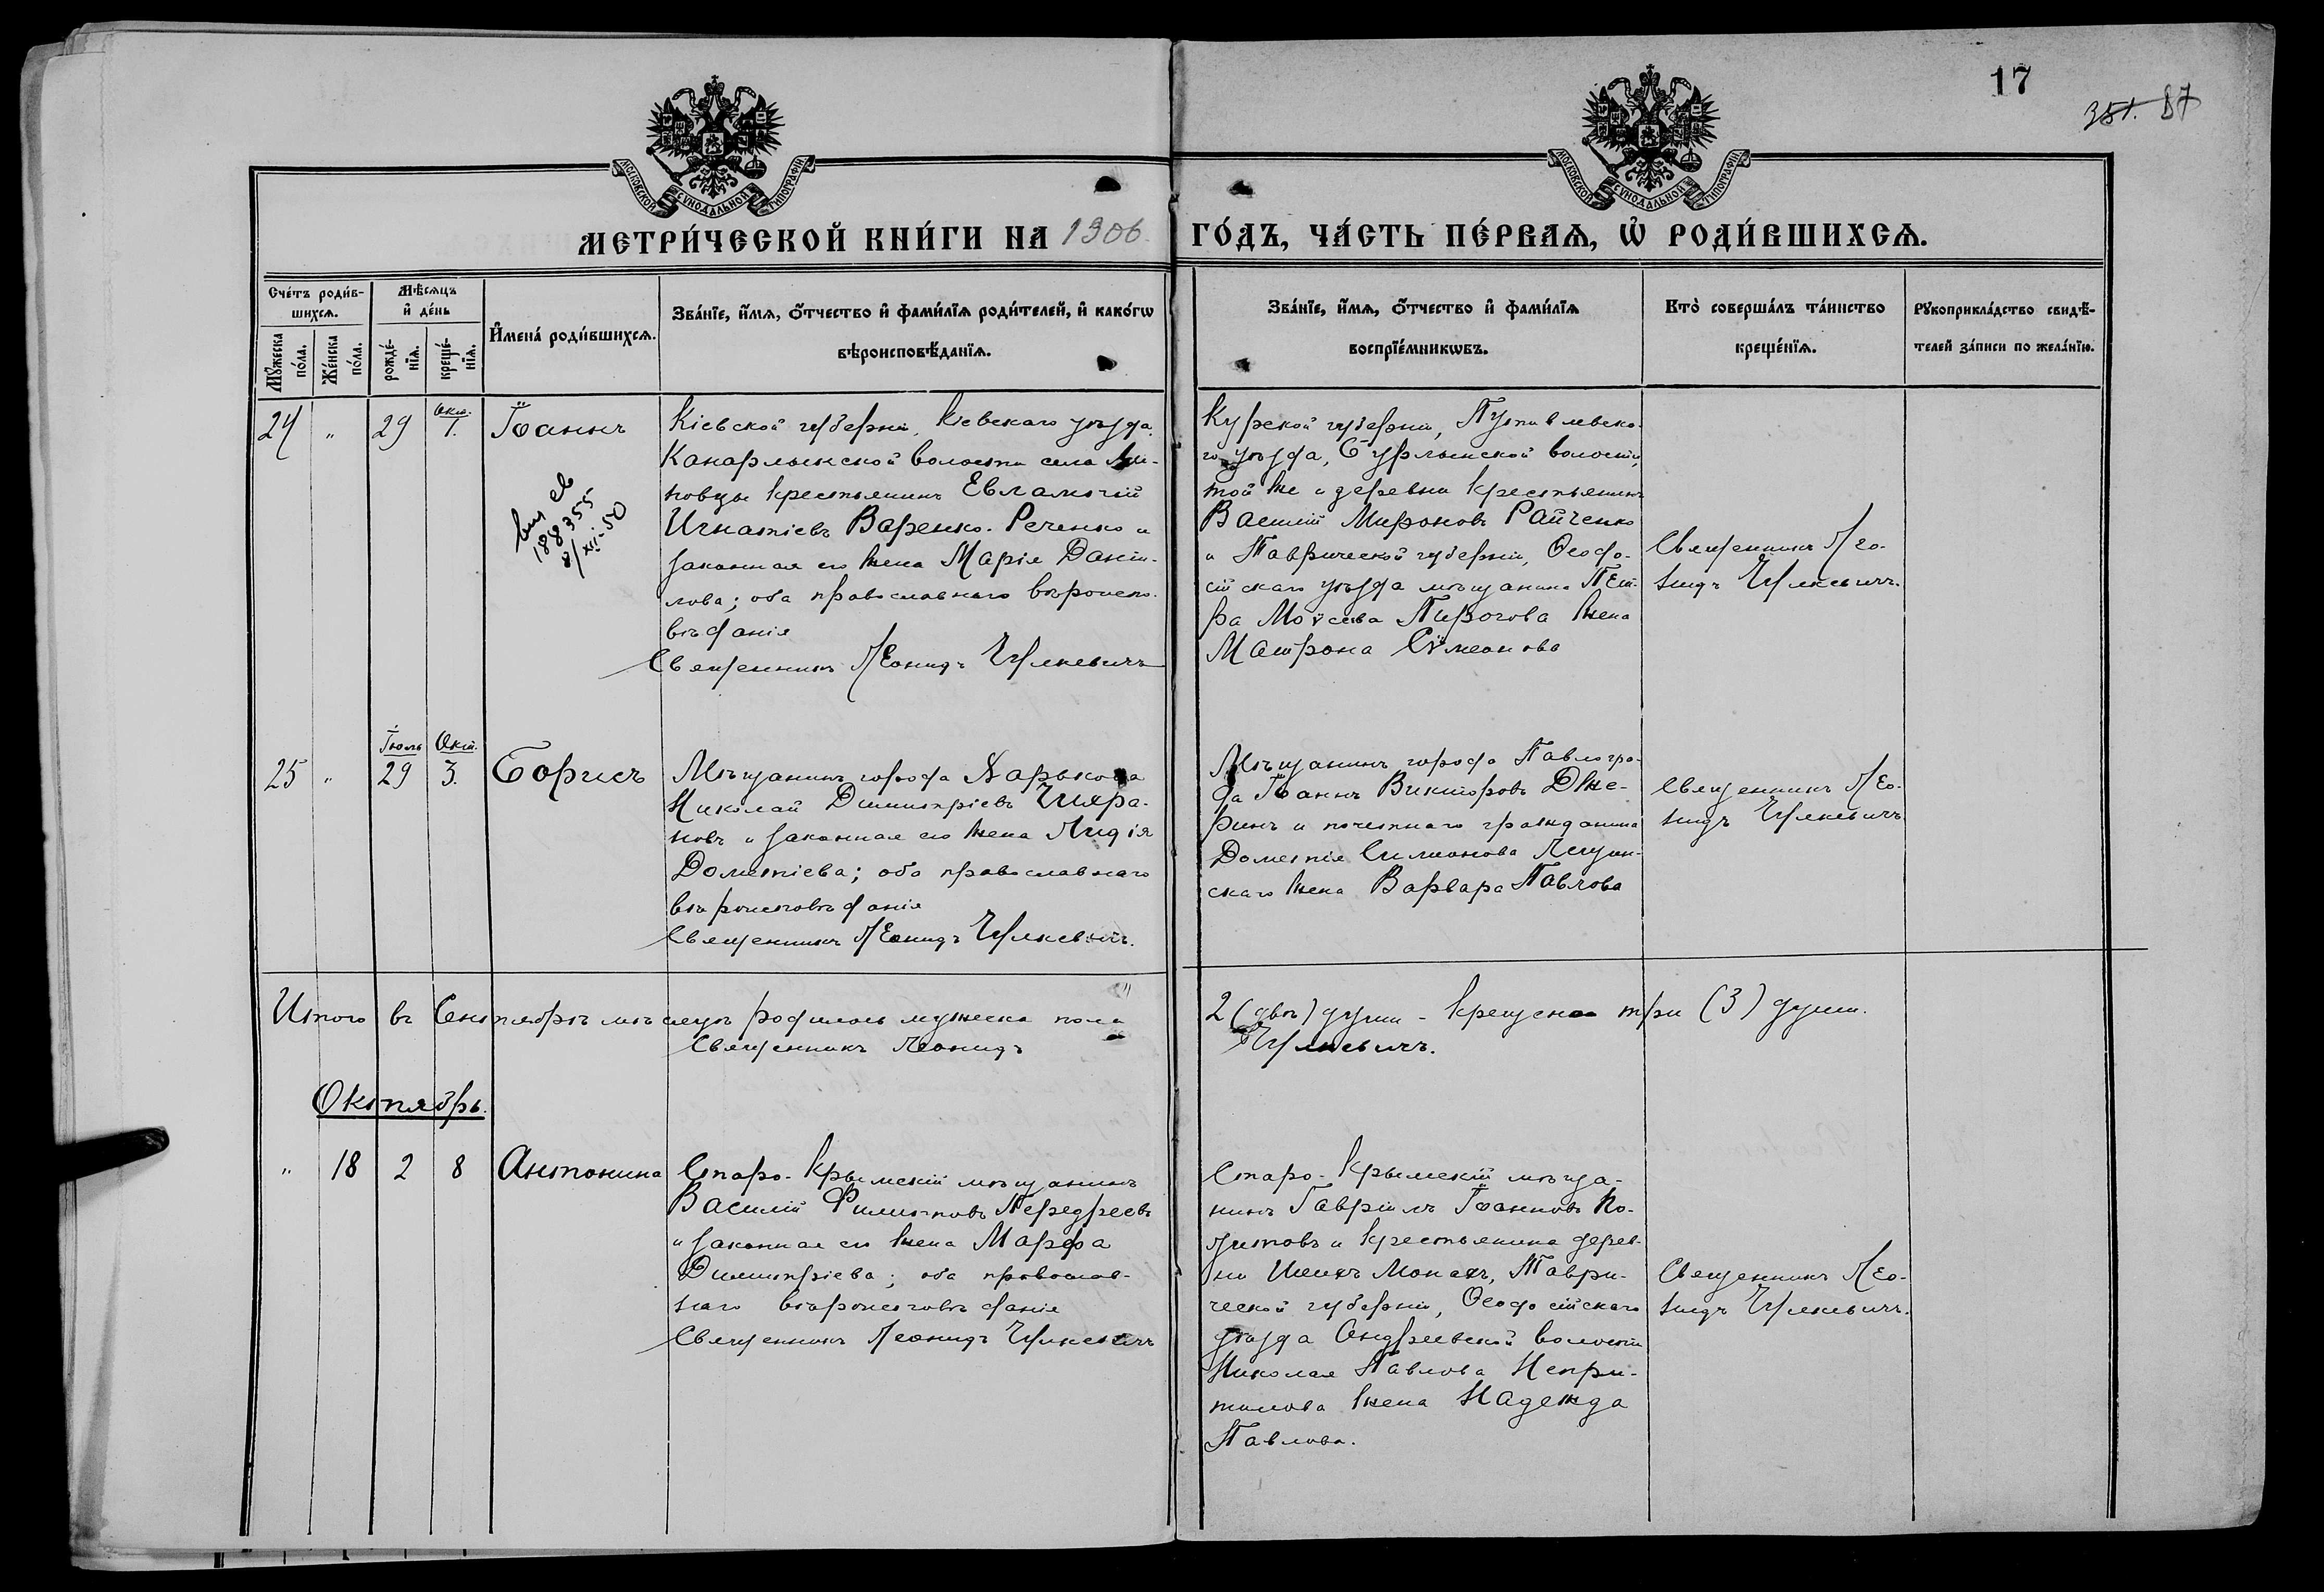 17
351. 87
МОСКОВСКОЙ СѴНОДАЛЬНОЙ ТИПОГРАФІИ
МОСКОВСКОЙ СѴНОДАЛЬНОЙ ТИПОГРАФІИ
МЕТРИ́ЧЕСКОЙ КНИ́ГИ НА 1906 ГО́ДЪ, ЧА́СТЬ ПЕ́РВАѦ, Ѡ҆ РОДИ́ВШИХСѦ.
Сче́тъ роди́в-
шихсѧ.
Мꙋ́жеска по́ла.
Же́нска по́ла.
Мѣ́сѧцъ
и҆ де́нь
рожде́-
нїѧ.
креще́-
нїѧ.
И҆мена̀ роди́вшихсѧ.
Зва́нїе, и҆́мѧ, ѻ҆́тчество и҆ фами́лїѧ роди́телей, и҆ како́гѡ
вѣроисповѣ́данїѧ.
Зва́нїе, и҆́мѧ, ѻ҆́тчество и҆ фами́лїѧ
воспрїе́мникѡвъ.
Кто̀ соверша́лъ та́инство
креще́нїѧ.
Рꙋкоприкла́дство свидѣ́-
телей за́писи по жела́нїю.
24 " 29 Окт. 1. Іоаннъ
вид. св
188355
8/XII-50
Кіевской губерніи, Кіевскаго уѣзда,
Кагарлыкской волости села
новцы крестьянинъ Евлампій
Игнатіевъ Варенко-Реченко и
законная его жена Марія Даніи-
лова; оба православнаго вѣроиспо-
вѣданія
Священникъ Леонидъ Чулкевичъ
Курской губерніи, Путивлевска-
го уѣзда, Бурлынской волости,
той же и деревни крестьянинъ
Василій Мироновъ Райченко
и Таврической губерніи, Ѳеодо-
сійскаго уѣзда мѣщанина Пет-
ра Моѵсеева Пирогова жена
Матрона Сѵмеонова
Священникъ Лео-
нидъ Чулкевичъ.
25 " Іюль 29 Окт. 3. Борисъ
Мѣщанинъ города Харькова
Николай Димитріевъ
новъ и законная его жена Лидія
Дометіева; оба православнаго
вѣроисповѣданія
Священникъ Леонидъ Чулкевичъ.
Мѣщанинъ города Павлогра-
да Іоаннъ Викторовъ Дже-
ринъ и почетнаго гражданина
Дометія Симеонова Лещин-
скаго жена Варвара Павлова
Священникъ Лео-
нидъ Чулкевичъ
Итого въ Сентябрѣ мѣсяцѣ родилось мужеска пола 2 (двѣ) души - крещено три (3) души.
Священникъ Леонидъ Чулкевичъ.
Октябрь.
" 18 2 8 Антонина
Старо-Крымскій мѣщанинъ
Василій Филипповъ Передреевъ
и законная его жена Марфа
Димитріева; оба православ-
наго вѣроисповѣданія
Священникъ Леонидъ Чулкевичъ
Старо-Крымскій мѣща-
нинъ Гавріилъ Іоанновъ По-
литовъ и крестьянина дерев-
ни Шейхъ Монахъ, Таври-
ческой губерніи, Ѳеодосійскаго
уѣзда Андреевской волости
Николая Павлова Непри-
тилова жена Надежда
Павлова.
Священникъ Лео-
нидъ Чулкевичъ.